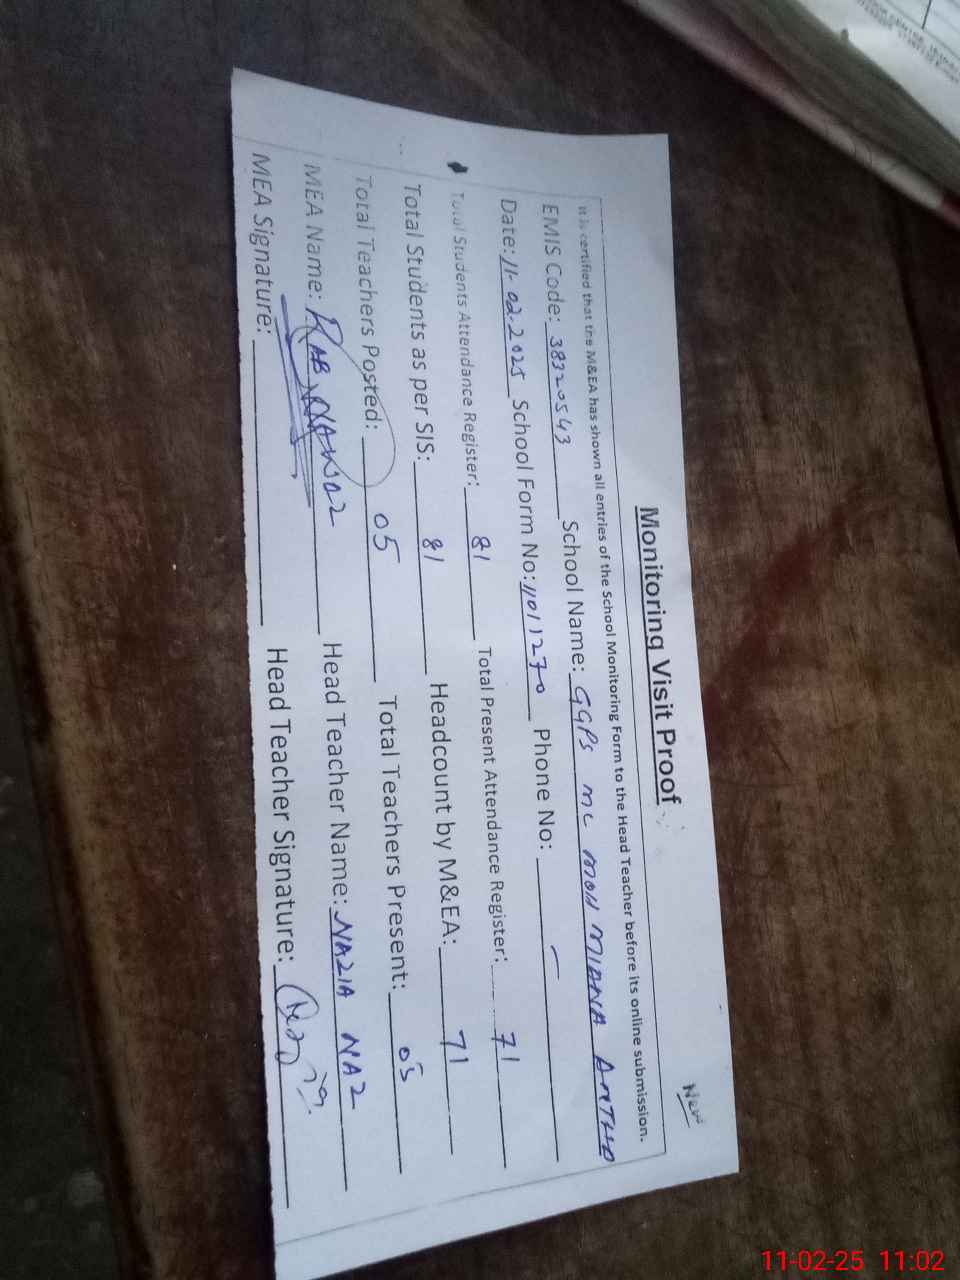 New
Monitoring Visit Proof
It is certified that the M&EA has shown all entries of the School Monitoring Form to the Head Teacher before its online submission.
EMIS Code: 38320543 School Name: GGPS MC MOH MIANA
Date: 11-02-2025 School Form No: 11011270 Phone No: –
Total Students Attendance Register: 81 Total Present Attendance Register: 71
Total Students as per SIS: 81 Headcount by M&EA: 71
Total Teachers Posted: 05 Total Teachers Present: 05
MEA Name: RAB NAWAZ Head Teacher Name: NAZIA NAZ
MEA Signature: Head Teacher Signature:
11-02-25 11:02